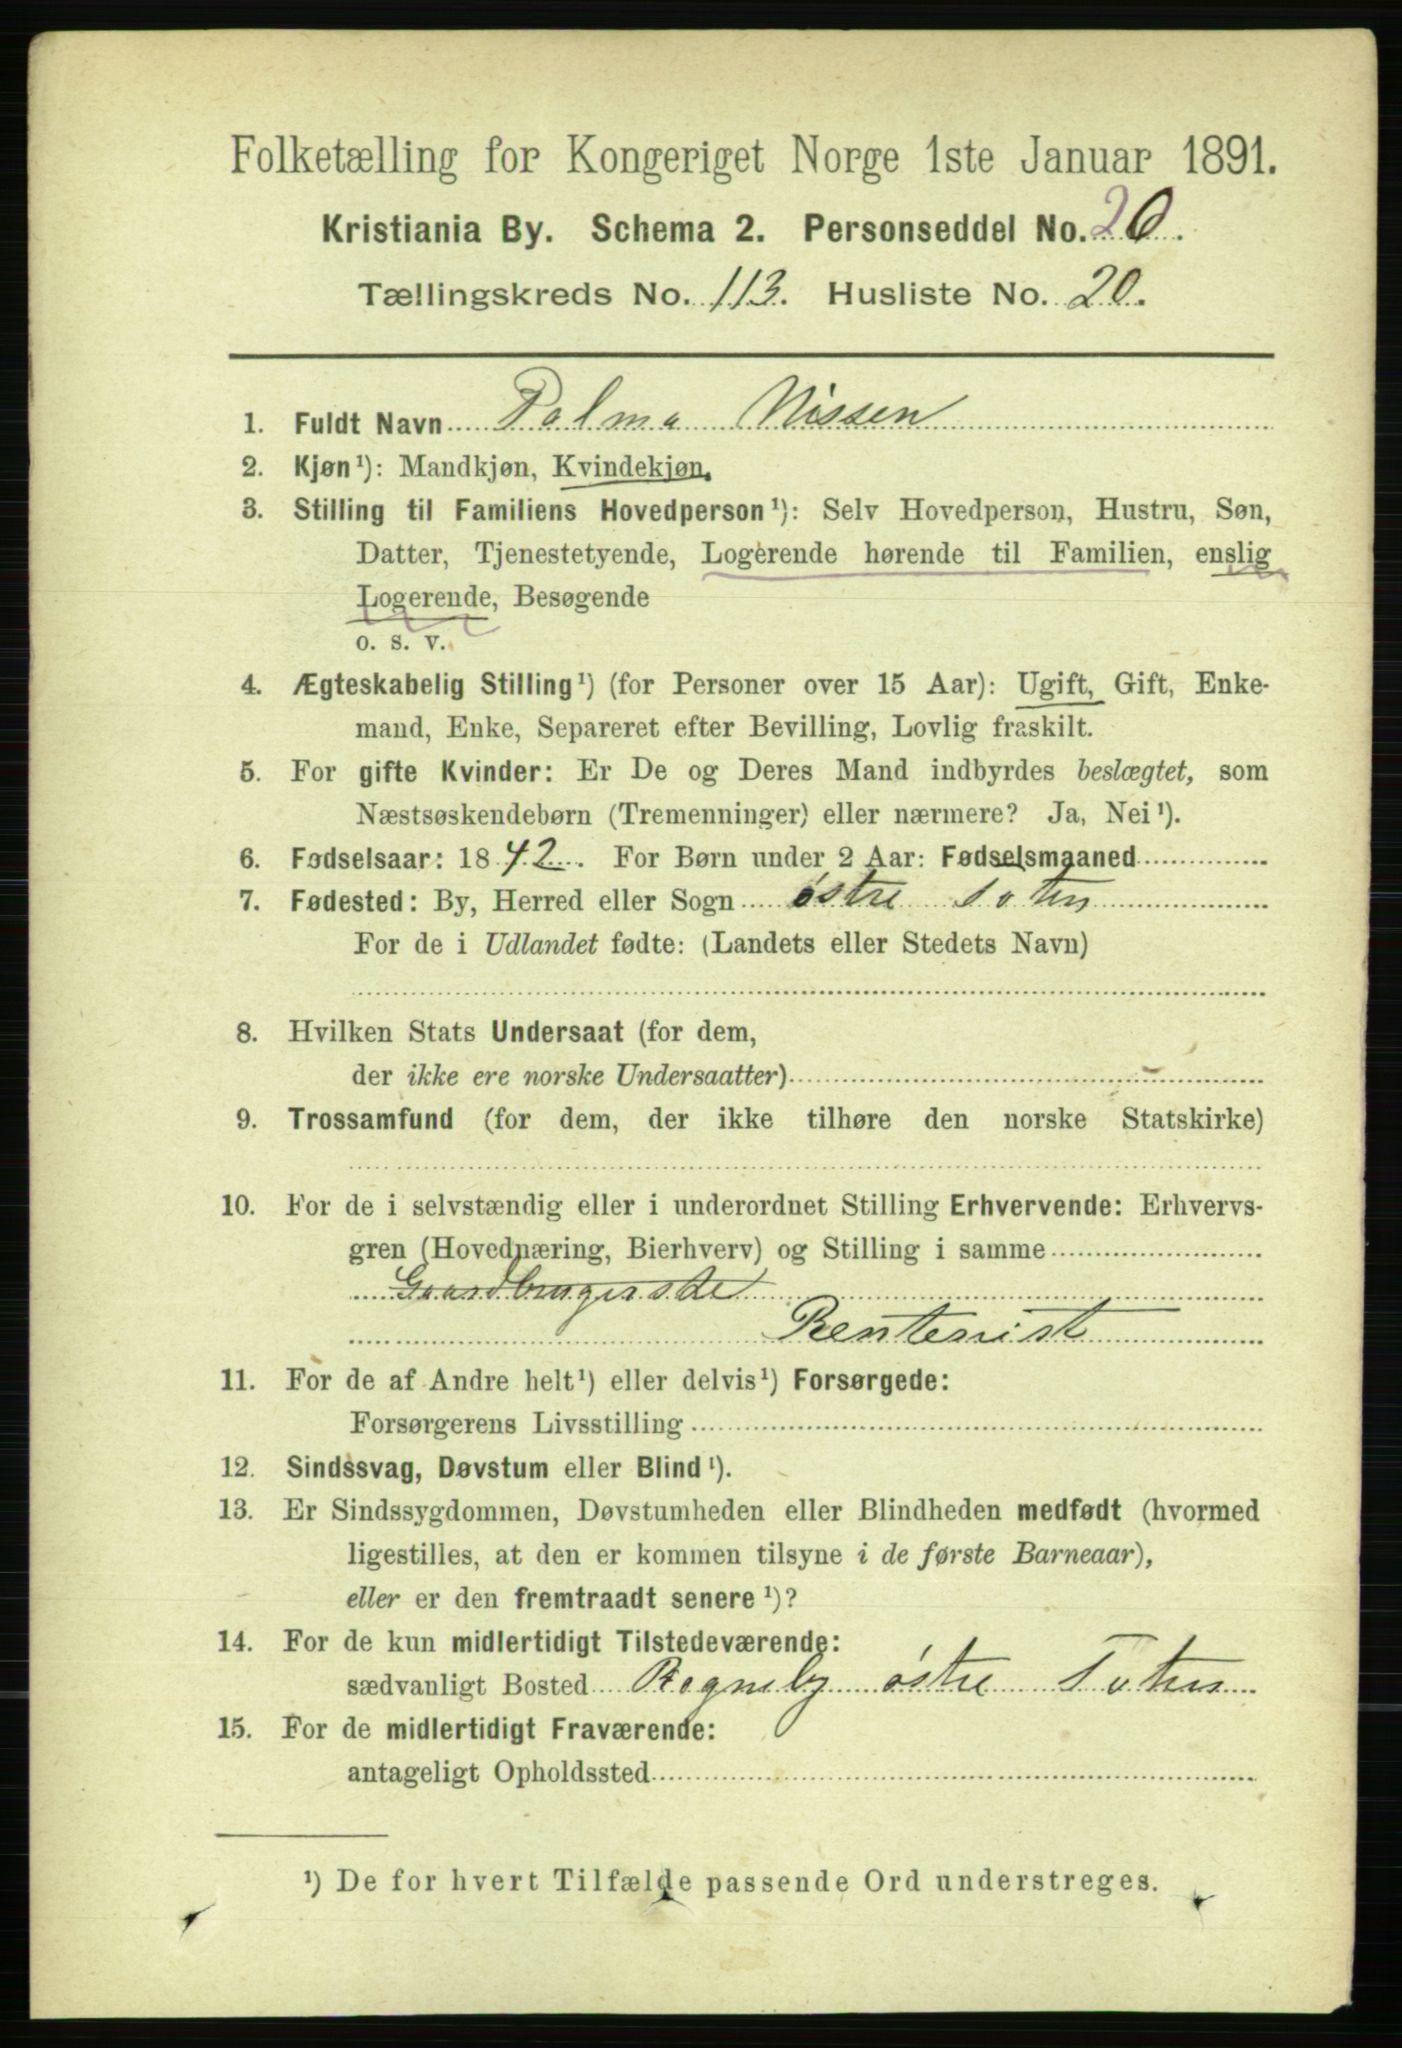 Folketælling for Kongeriget Norge 1ste Januar 1891.
Kristiania By. Schema 2. Personseddel No. 20.
Tællingskreds No. 113. Husliste No. 20.
1. Fuldt Navn Palma Nissen
2. Kjøn¹): Mandkjøn, Kvindekjøn.
3. Stilling til Familiens Hovedperson¹): Selv Hovedperson, Hustru, Søn,
Datter, Tjenestetyende, Logerende hørende til Familien, enslig
Logerende, Besøgende
o. s. v.
4. Ægteskabelig Stilling¹) (for Personer over 15 Aar): Ugift, Gift, Enke-
mand, Enke, Separeret efter Bevilling, Lovlig fraskilt.
5. For gifte Kvinder: Er De og Deres Mand indbyrdes beslægtet, som
Næstsøskendebørn (Tremenninger) eller nærmere? Ja, Nei¹).
6. Fødselsaar: 1842. For Børn under 2 Aar: Fødselsmaaned
7. Fødested: By, Herred eller Sogn østre Toten
For de i Udlandet fødte: (Landets eller Stedets Navn)
8. Hvilken Stats Undersaat (for dem,
der ikke ere norske Undersaatter)
9. Trossamfund (for dem, der ikke tilhøre den norske Statskirke)
10. For de i selvstændig eller i underordnet Stilling Erhvervende: Erhvervs-
gren (Hovednæring, Bierhverv) og Stilling i samme
Gaardbrugerske
Rentenist
11. For de af Andre helt¹) eller delvis¹) Forsørgede:
Forsørgerens Livsstilling
12. Sindssvag, Døvstum eller Blind¹).
13. Er Sindssygdommen, Døvstumheden eller Blindheden medfødt (hvormed
ligestilles, at den er kommen tilsyne i de første Barneaar),
eller er den fremtraadt senere¹)?
14. For de kun midlertidigt Tilstedeværende:
sædvanligt Bosted Rogneby østre Toten
15. For de midlertidigt Fraværende:
antageligt Opholdssted
¹) De for hvert Tilfælde passende Ord understreges.